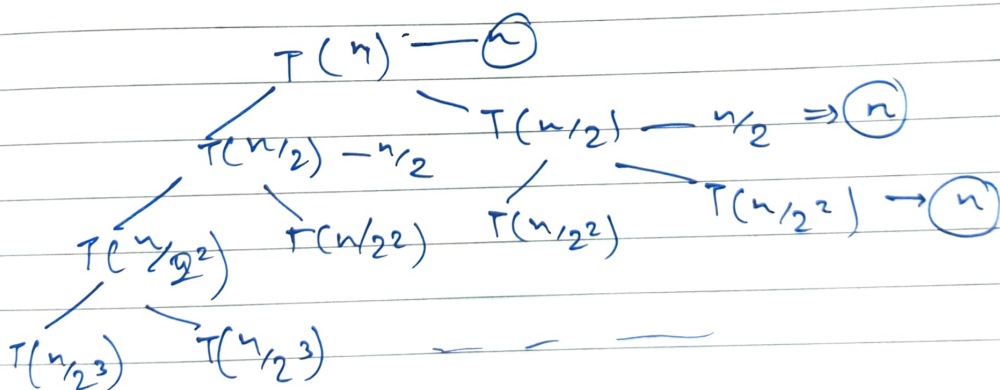 T(n) — n
T(n/2) — n/2 T(n/2) — n/2 ⇒ n
T(n/2²) T(n/2²) T(n/2²) T(n/2²) → n
T(n/2³) T(n/2³) — — —